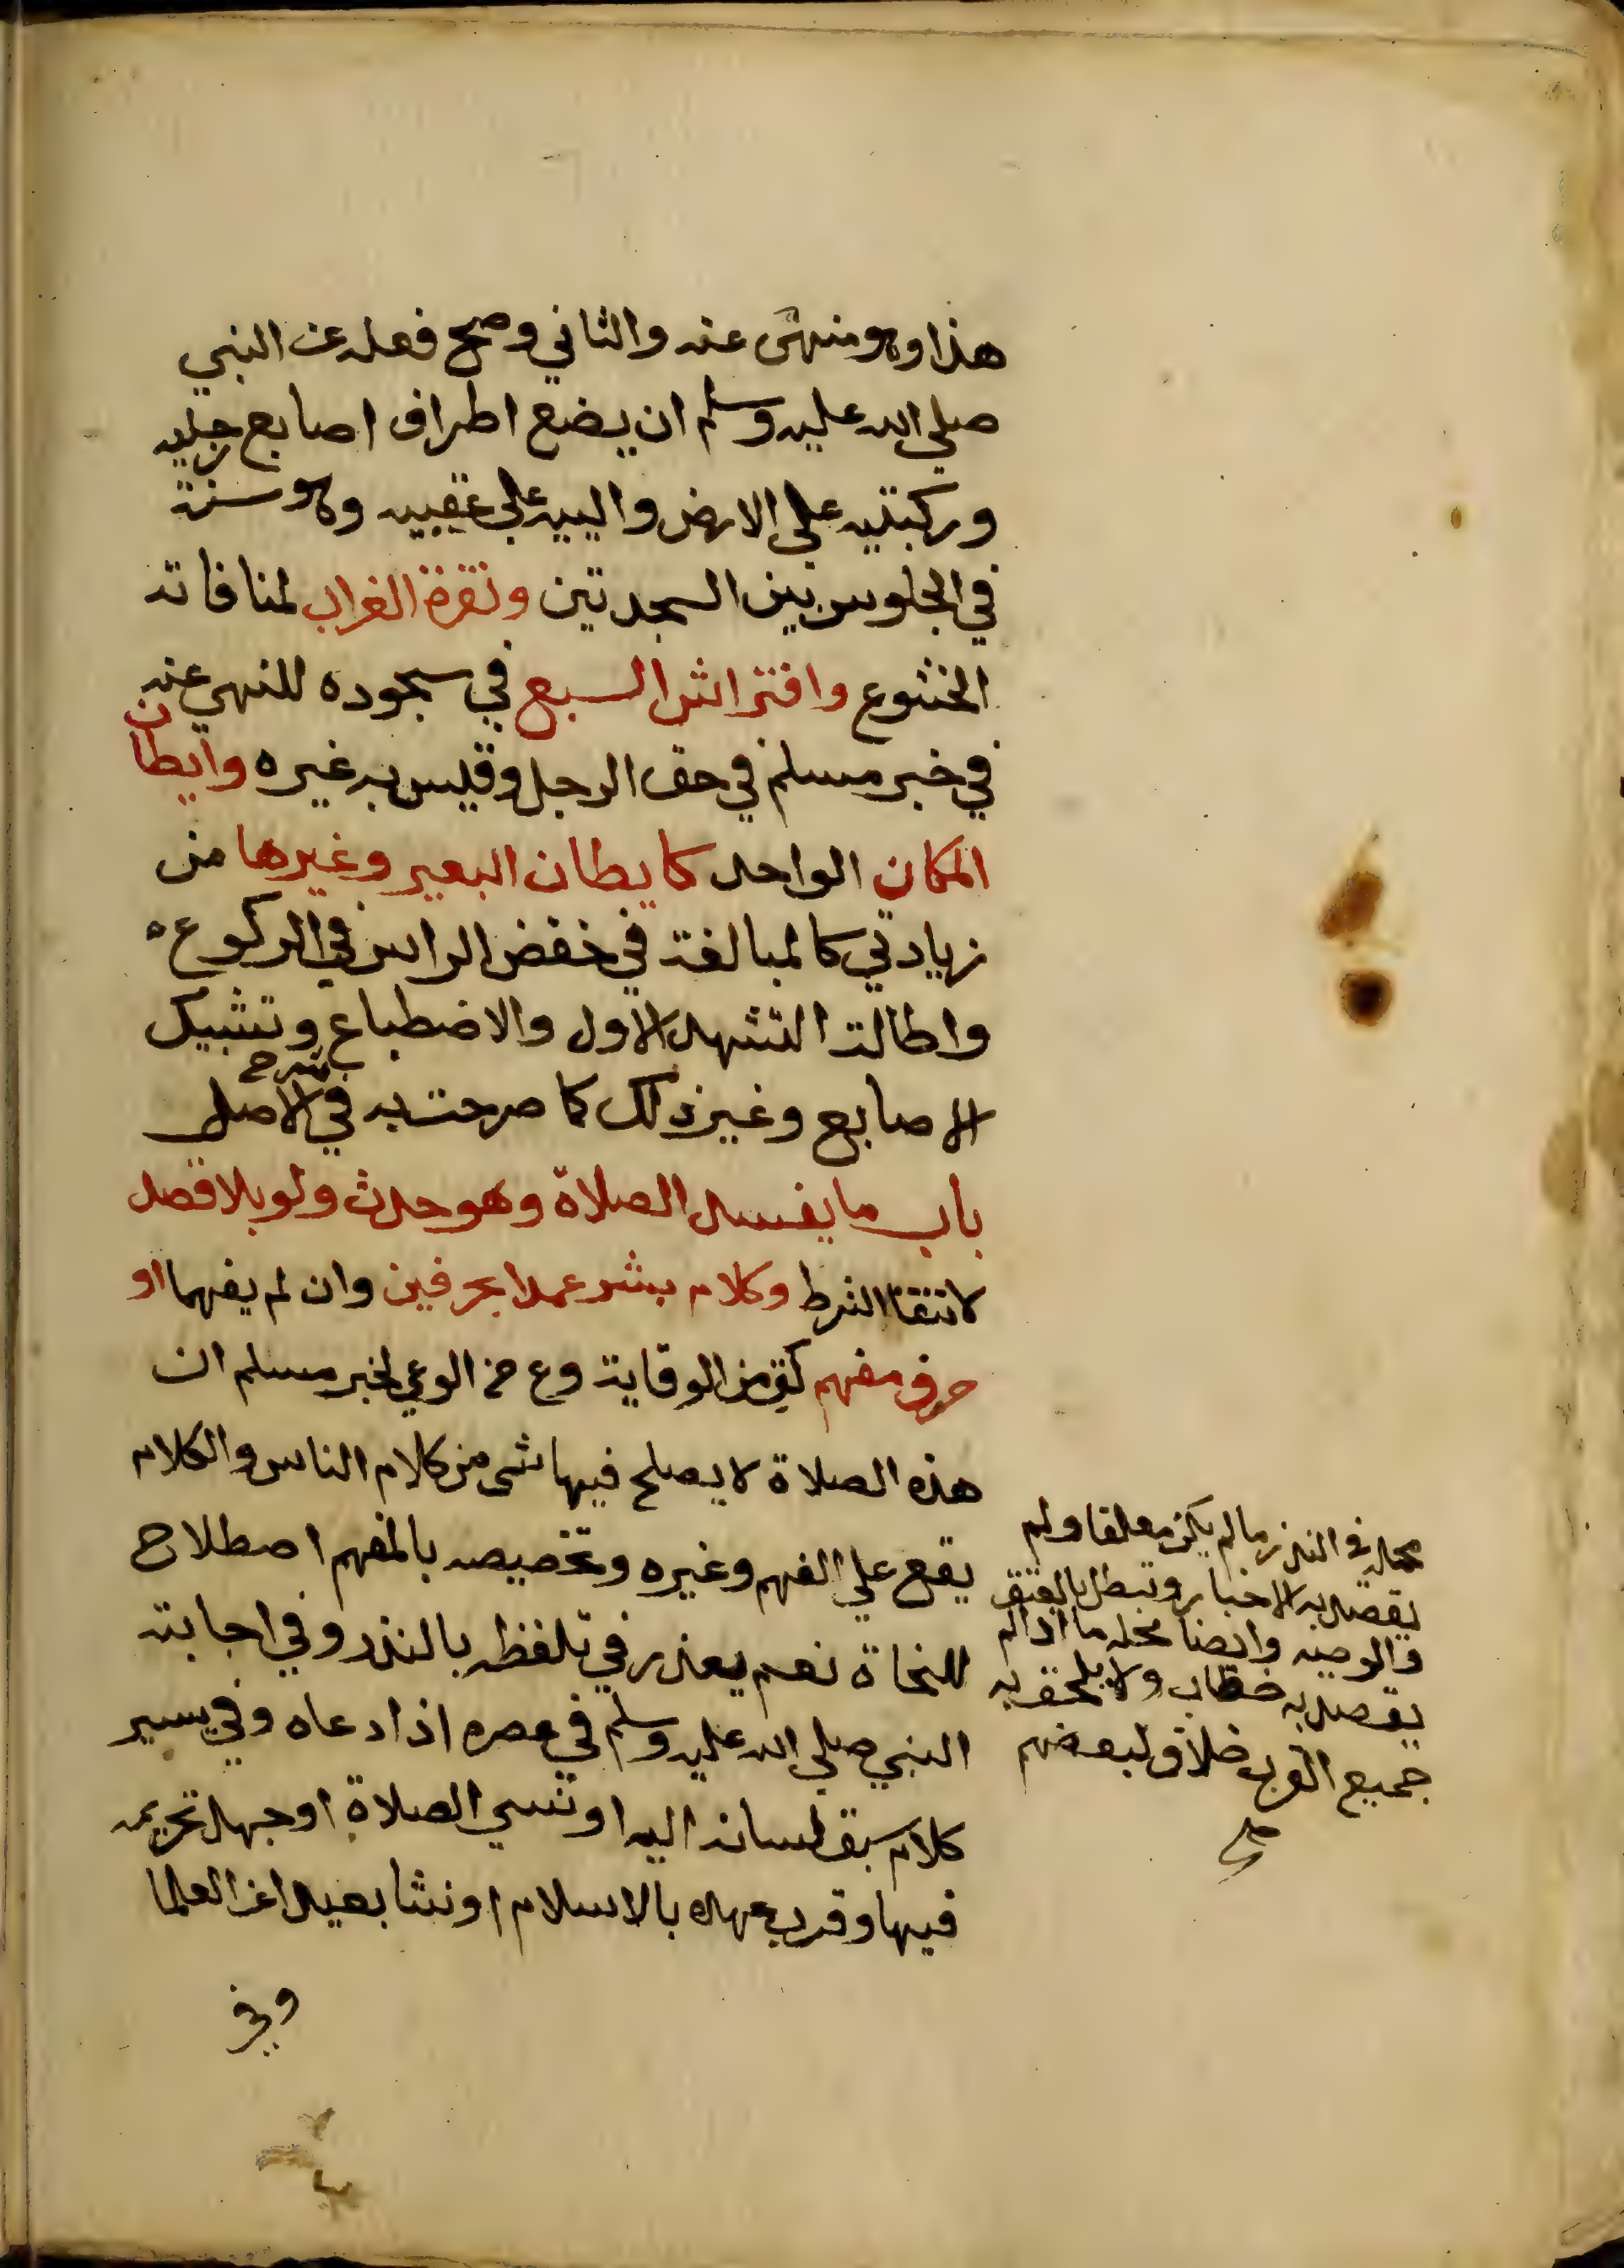 هذا وهو منهى عنه والثاني وصح فعله عن النبي
صلي الله عليه وسلم ان يضع اطراف اصابع رجليه
وركبتيه علي الارض واليیه علي عقبيه وهو سنة
في الجلوس بين السجدتين ونقرة الغراب لمنافاته
الخشوع وافتراش السبع في سجوده للنهي عنه
في خبر مسلم في حق الرجل وقيس به غيره وايطان
المكان الواحد كايطان البعير وغيرها من
زيادتي كالمبالغة في خفض الراس في الركوع
واطالة التشهد الاول والاضطباع وتشبيك
الاصابع وغير ذلك كما صرحت به في شرح الاصل
باب ما يفسد الصلاة وهو حدث ولو بلا قصد
لانتفا الشرط وكلام بشر عمدا بحرفين وان لم يفهما او
حرف مفهم كق من الوقاية وع من الوعي لخبر مسلم ان
هذه الصلاة لا يصلح فيها شى من كلام الناس والكلام
يقع علي الفهم وغيره وتخصيصه بالمفهم اصطلاح
للنحاة نعم يعذر في تلفظه بالنذر وفي اجابته
النبي صلي الله عليه وسلم في عصره اذا دعاه وفي يسير
كلام سبق لسانه اليه او نسي الصلاة او جهل تحريمه
فيها وقرب عهده بالاسلام او نشا بعيدا عن العلما
وفي
محله في النذر ما لم يكن معلقا ولم
يقصد به الاخبار وتبطل بالعتق
والوصيه وايضا محله ما اذا لم
يقصد به خطاب ولا يلحق به
جميع القرب خلاف لبعضهم